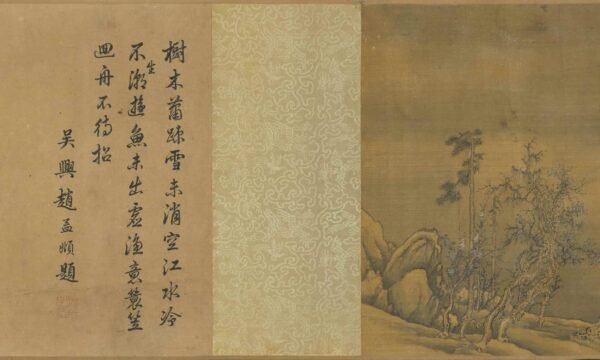 樹木蕭踈雪未消空江水冷
不生潮遊魚未出虛漁意簑笠
迴舟不待招
吳興趙孟頫題